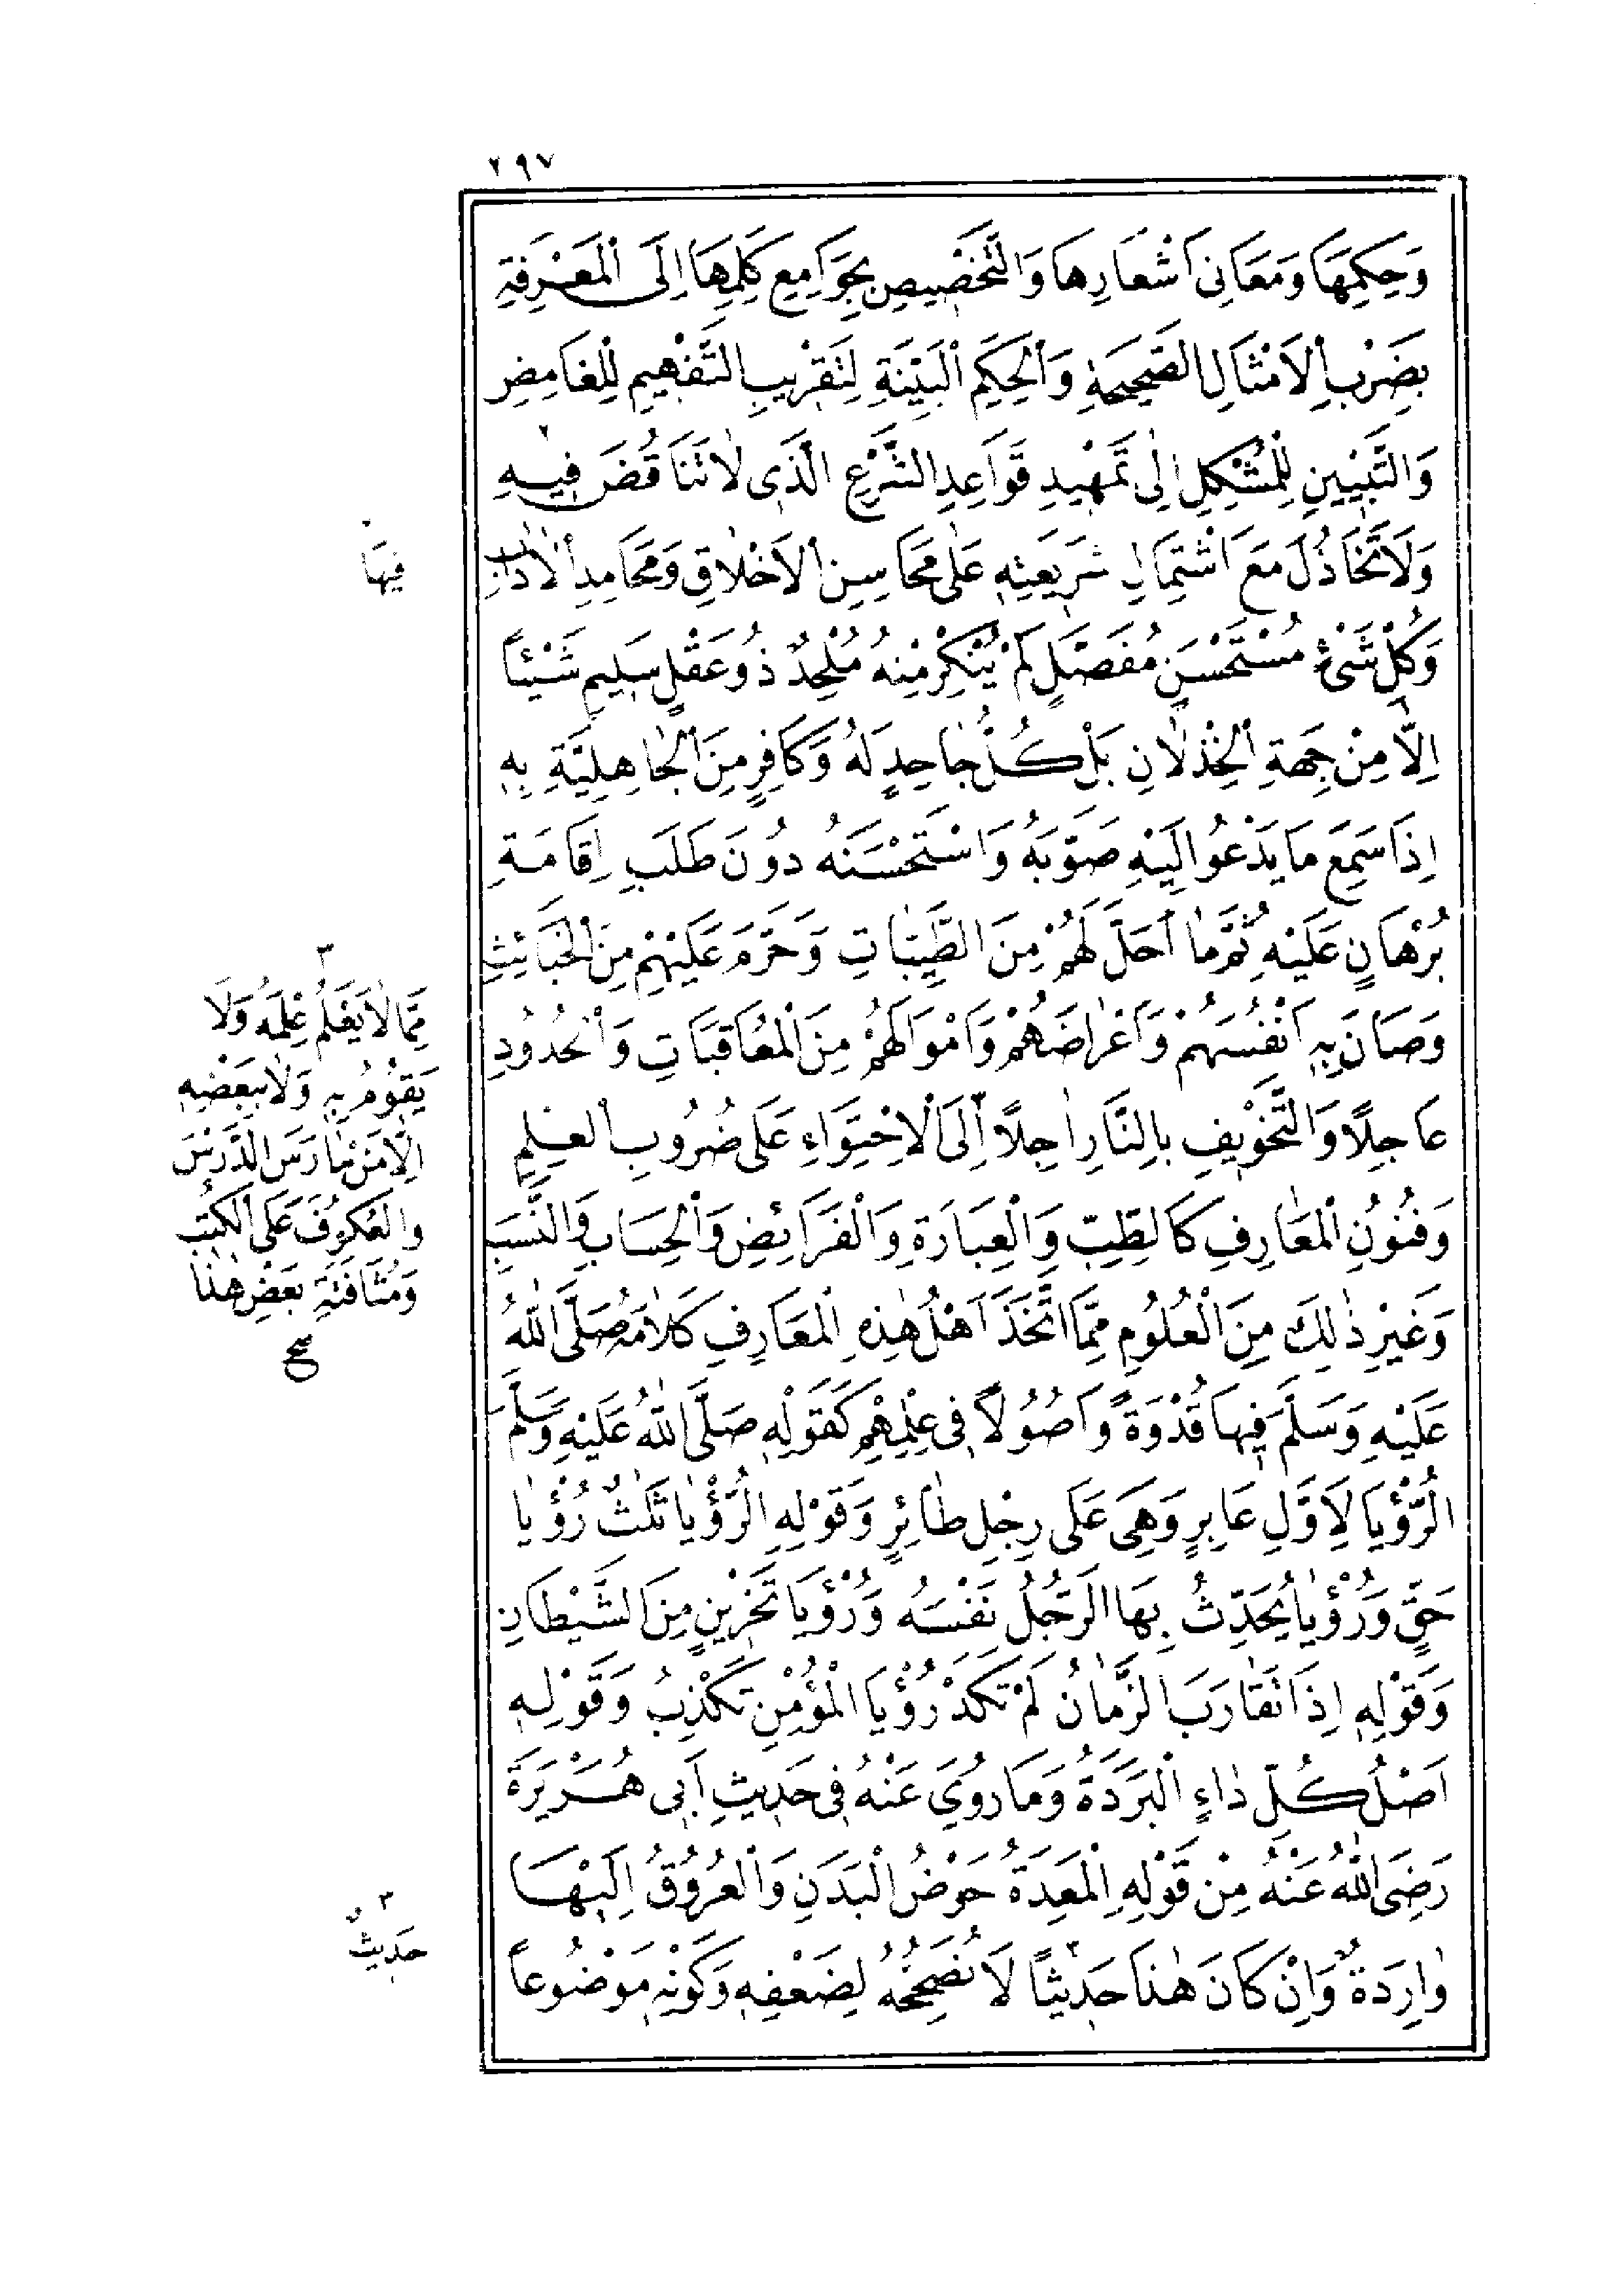 ٢٩٧
وَحِكَمِهَا وَمَعَانِى اَشْعَارِهَا وَالتَّخْصِيصِ بِجَوَامِعِ كَلِمِهَا اِلَى الْمَعْرِفَةِ
بِضَرْبِ الْاَمْثَالِ الصَّحِيحَةِ وَالْحِكَمِ الْبَيِّنَةِ لِتَقْرِيبِ التَّفْهِيمِ لِلْغَامِضِ
وَالتَّبْيِينِ لِلْمُشْكِلِ اِلٰى تَمْهِيدِ قَوَاعِدِ الشَّرْعِ الَّذِى لَا تَنَاقُضَ فِيهِ ٢
وَلَا تَخَاذُلَ مَعَ اشْتِمَالِ شَرِيعَتِهِ عَلٰى مَحَاسِنِ الْاَخْلَاقِ وَمَحَامِدِ الْاٰدَابِ
وَكُلِّ شَىْءٍ مُسْتَحْسَنٍ مُفَصَّلٍ لَمْ يُنْكِرْ مِنْهُ مُلْحِدٌ ذُو عَقْلٍ سَلِيمٍ شَيْئًا
اِلَّا مِنْ جِهَةِ الْخِذْلَانِ بَلْ كُلُّ جَاحِدٍ لَهُ وَكَافِرٍ مِنَ الْجَاهِلِيَّةِ بِهِ
اِذَا سَمِعَ مَا يَدْعُو اِلَيْهِ صَوَّبَهُ وَاسْتَحْسَنَهُ دُونَ طَلَبِ اِقَامَةِ
بُرْهَانٍ عَلَيْهِ ثُمَّ مَا اَحَلَّ لَهُمْ مِنَ الطَّيِّبَاتِ وَحَرَّمَ عَلَيْهِمْ مِنَ الْخَبَائِثِ
وَصَانَ بِهِ اَنْفُسَهُمْ وَاَعْرَاضَهُمْ وَاَمْوَالَهُمْ مِنَ الْمُعَاقَبَاتِ وَالْحُدُودِ
عَاجِلًا وَالتَّخْوِيفِ بِالنَّارِ اٰجِلًا اِلَى الْاِحْتِوَاءِ عَلَى ضُرُوبِ الْعِلْمِ
وَفُنُونِ الْمَعَارِفِ كَالطِّبِّ وَالْعِبَارَةِ وَالْفَرَائِضِ وَالْحِسَابِ وَالنَّسَبِ
وَغَيْرِ ذٰلِكَ مِنَ الْعُلُومِ مِمَّا اتَّخَذَ اَهْلُ هٰذِهِ الْمَعَارِفِ كَلَامَهُ صَلَّى اللّٰهُ
عَلَيْهِ وَسَلَّمَ فِيهَا قُدْوَةً وَاُصُولًا فِى عِلْمِهِمْ كَقَوْلِهِ صَلَّى اللّٰهُ عَلَيْهِ وَسَلَّمَ
الرُّؤْيَا لِاَوَّلِ عَابِرٍ وَهِىَ عَلَى رِجْلِ طَائِرٍ وَقَوْلِهِ الرُّؤْيَا ثَلٰثٌ رُؤْيَا
حَقٍّ وَرُؤْيَا يُحَدِّثُ بِهَا الرَّجُلُ نَفْسَهُ وَرُؤْيَا تَحْزِينٍ مِنَ الشَّيْطَانِ
وَقَوْلِهِ اِذَا تَقَارَبَ الزَّمَانُ لَمْ تَكَدْ رُؤْيَا الْمُؤْمِنِ تَكْذِبُ وَقَوْلِهِ
اَصْلُ كُلِّ دَاءٍ الْبَرَدَةُ وَمَا رُوِىَ عَنْهُ فِى حَدِيثِ اَبِى هُرَيْرَةَ
رَضِىَ اللّٰهُ عَنْهُ مِنْ قَوْلِهِ الْمَعِدَةُ حَوْضُ الْبَدَنِ وَالْعُرُوقُ اِلَيْهَا
وَارِدَةٌ وَاِنْ كَانَ هٰذَا حَدِيثًا ٣ لَا نُصَحِّحُهُ لِضَعْفِهِ وَكَوْنِهِ مَوْضُوعًا
فِيهَا
٣
مِمَّا لَا يَعْلَمُ عِلْمَهُ وَلَا
يَقُومُ بِهِ وَلَا بِبَعْضِهِ
اِلَّا مَنْ مَارَسَ الدَّرْسَ
وَالْعُكُوفَ عَلَى الْكُتُبِ
وَمُثَافَنَةِ بَعْضِ هٰذَا
صح
٣
حَدِيثٌ